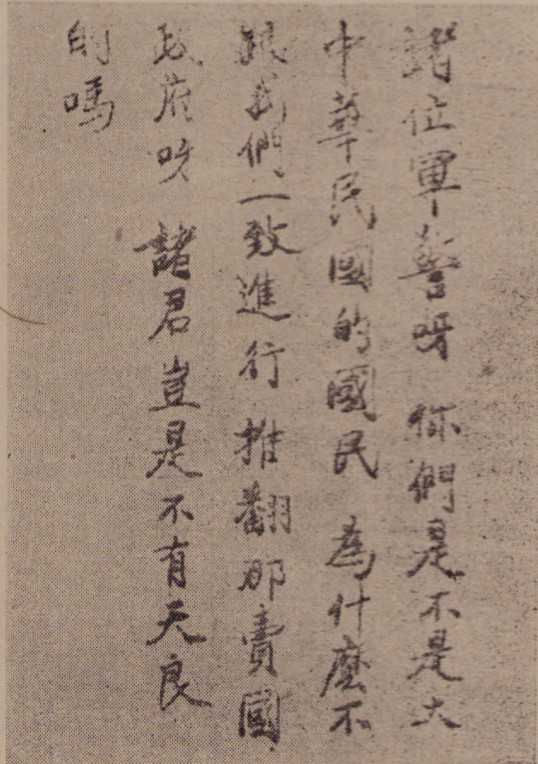 諸位軍警呀 你們是不是大
中華民國的國民 為什麼不
跟我們一致進行 推翻那賣國
政府呀 諸君豈是不有天良
的嗎